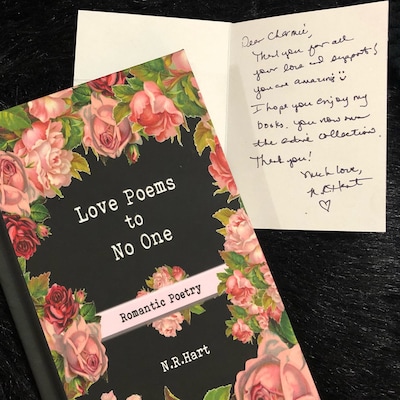 Dear Charmie,
Thank you for all
your love and support!
you are amazing
I hope you enjoy my
books. you now own
the entire collection.
Thank you!
Much love,
N.R. Hart
Love Poems
to
No One
Romantic Poetry
N.R.Hart